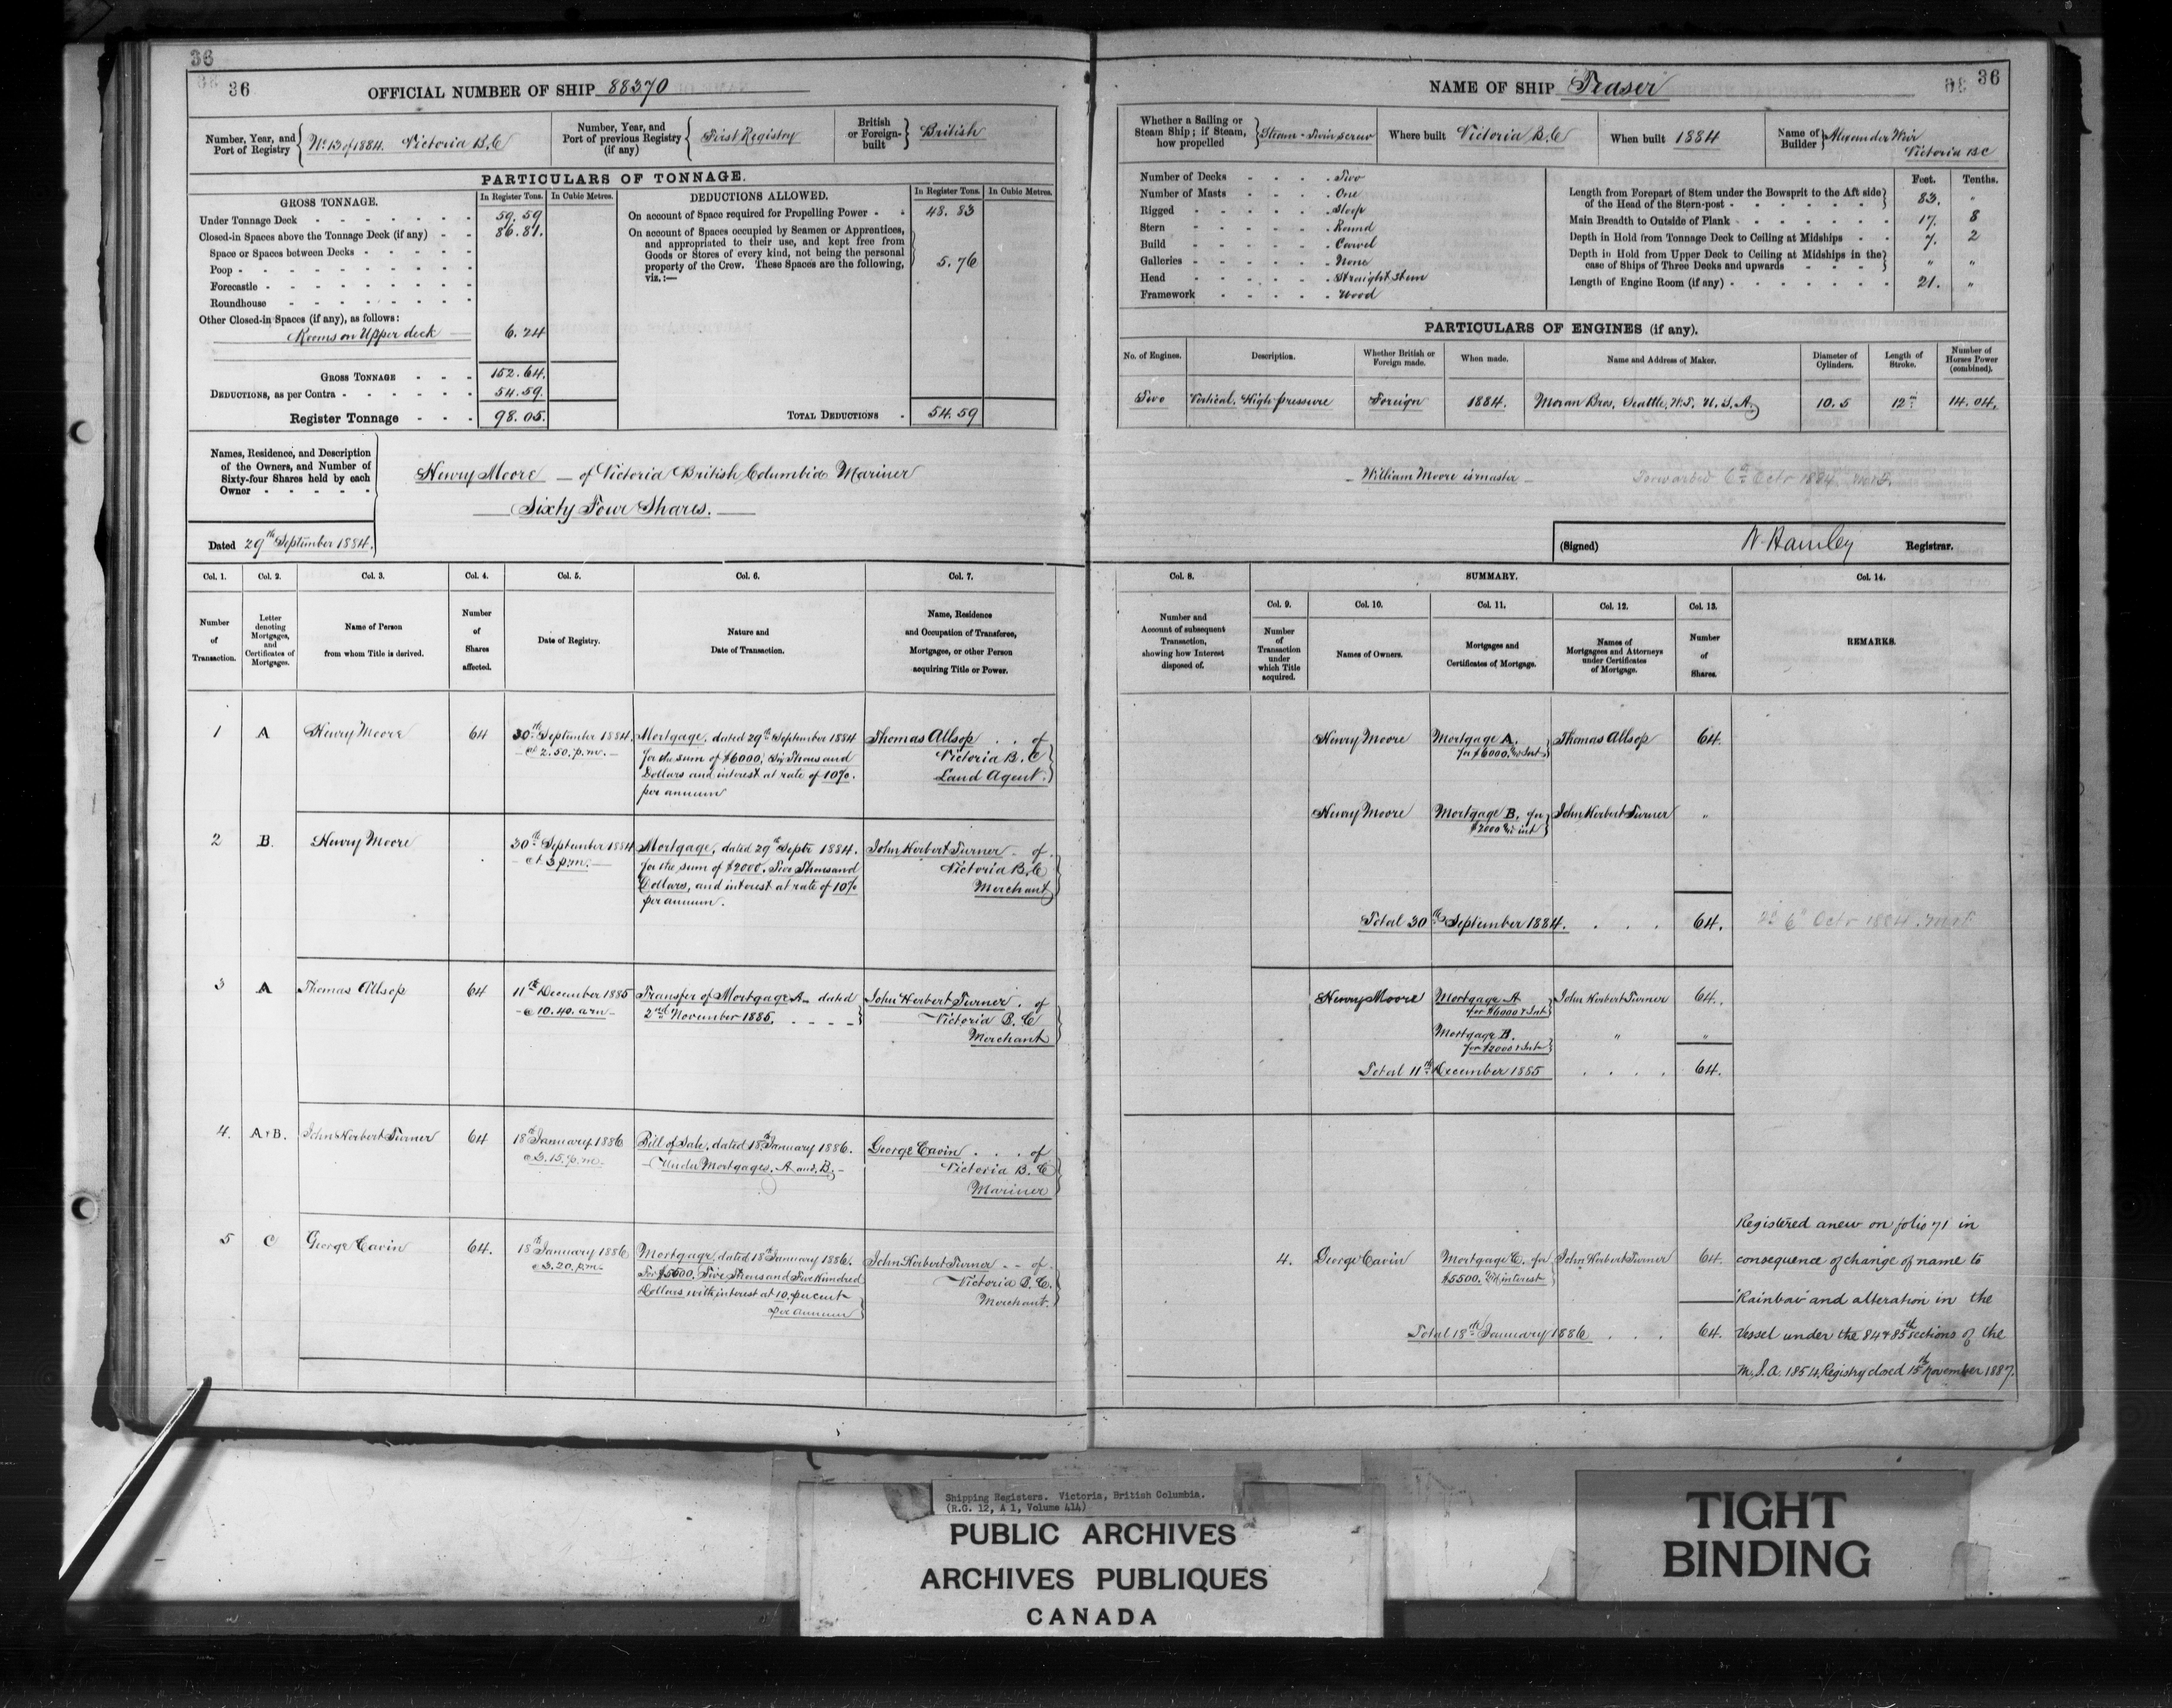 36
36
OFFICIAL NUMBER OF SHIP 88370
Number, Year, and Port of Registry
No 13 of 1884. Victoria B.C
Number, Year, and Port of previous Registry (if any)
First Registry
British or Foreign-built
British
PARTICULARS OF TONNAGE.
GROSS TONNAGE.
In Register Tons.
In Cubic Metres.
DEDUCTIONS ALLOWED.
In Register Tons.
In Cubic Metres.
Under Tonnage Deck 59.59
Closed-in Spaces above the Tonnage Deck (if any) 86.81.
Space or Spaces between Decks
Poop
Forecastle
Roundhouse
Other Closed-in Spaces (if any), as follows:
Rooms on Upper deck 6.24
GROSS TONNAGE 152.64.
DEDUCTIONS, as per Contra 54.59.
Register Tonnage 98.05.
On account of Space required for Propelling Power 48.83
On account of Spaces occupied by Seamen or Apprentices,
and appropriated to their use, and kept free from
Goods or Stores of every kind, not being the personal
property of the Crew. These Spaces are the following,
viz.:— 5.76
TOTAL DEDUCTIONS 54.59
Names, Residence, and Description
of the Owners, and Number of
Sixty-four Shares held by each
Owner
Henry Moore — of Victoria British Columbia Mariner
Sixty Four Shares.
Dated 29th September 1884.
Col. 1. Col. 2. Col. 3. Col. 4. Col. 5. Col. 6. Col. 7.
Number of Transaction.
Letter denoting Mortgages, and Certificates of Mortgages.
Name of Person from whom Title is derived.
Number of Shares affected.
Date of Registry.
Nature and Date of Transaction.
Name, Residence and Occupation of Transferee, Mortgagee, or other Person acquiring Title or Power.
1 A Henry Moore 64
30th September 1884.
at 2.50. p.m.
Mortgage, dated 29th September 1884
for the sum of $6000, Six Thousand
Dollars and interest at rate of 10%.
per annum
Thomas Allsop . . of
Victoria B.C
Land Agent.
2 B. Henry Moore
30th September 1884
at 3 p.m.
Mortgage, dated 29th Septr 1884.
for the sum of $2000. Two Thousand
Dollars, and interest at rate of 10%
per annum.
John Herbert Turner - of
Victoria B.C
Merchant
3 A Thomas Allsop 64
11th December 1885
@ 10.40. a m
Transfer of Mortgage A - dated
2nd November 1885.
John Herbert Turner . of
Victoria B.C
Merchant
4. A + B. John Herbert Turner 64
18th January 1886
@ 3.15. p.m.
Bill of Sale, dated 18th January 1886.
Under Mortgages. A and B.
George Cavin . . . of
Victoria B.C
Mariner
5 C George Cavin 64.
18th January 1886
@ 3.20. p.m.
Mortgage dated 18th January 1886.
For $5500. Five Thousand Five Hundred
Dollars with interest at 10. per cent
per annum
John Herbert Turner - - of
Victoria B.C.
Merchant.
36
NAME OF SHIP Teaser
Whether a Sailing or Steam Ship; if Steam, how propelled
Steam - Twin screw
Where built Victoria B.C
When built 1884
Name of Builder Alexander Weir
Victoria BC
Number of Decks Two
Number of Masts One
Rigged Sloop
Stern Round
Build Carvel
Galleries None
Head Straight Stem
Framework Wood
Feet. Tenths.
Length from Forepart of Stem under the Bowsprit to the Aft side
of the Head of the Stern-post 83. "
Main Breadth to Outside of Plank 17. 8
Depth in Hold from Tonnage Deck to Ceiling at Midships 7. 2
Depth in Hold from Upper Deck to Ceiling at Midships in the
case of Ships of Three Decks and upwards " "
Length of Engine Room (if any) 21. "
PARTICULARS OF ENGINES (if any).
No. of Engines.
Description.
Whether British or Foreign made.
When made.
Name and Address of Maker.
Diameter of Cylinders.
Length of Stroke.
Number of Horses Power (combined).
Two
Vertical. High pressure
Foreign
1884.
Moran Bros. Seattle, W.T. U.S.A.
10.5
12"
14.04.
William Moore is master
Forwarded 6th Octr 1884
(Signed) W Hamley Registrar.
Col. 8. SUMMARY. Col. 14.
Col. 9. Col. 10. Col. 11. Col. 12. Col. 13.
Number and Account of subsequent Transaction, showing how Interest disposed of.
Number of Transaction under which Title acquired.
Names of Owners.
Mortgages and Certificates of Mortgage.
Names of Mortgagees and Attorneys under Certificates of Mortgage.
Number of Shares.
REMARKS.
Henry Moore
Mortgage A.
for $6000. & Int
Thomas Allsop 64.
Henry Moore
Mortgage B. for
$2000 & int
John Herbert Turner "
Total 30th September 1884. . . . 64.
6th Octr 1884.
Henry Moore
Mortgage A
for $6000 & Int
John Herbert Turner 64.
Mortgage B.
for $2000 & Int
" "
Total 11th December 1885 . . . . 64.
4. George Cavin
Mortgage C. for
$5500. & interest
John Herbert Turner 64
Total 18th January 1886 . . . 64.
Registered anew on folio 71 in
consequence of change of name to
'Rainbow' and alteration in the
Vessel under the 84 & 85th sections of the
M.S.A. 1854. Registry closed 15th November 1887.
Shipping Registers. Victoria, British Columbia.
(R.G. 12, A 1, Volume 414)
PUBLIC ARCHIVES
ARCHIVES PUBLIQUES
CANADA
TIGHT
BINDING